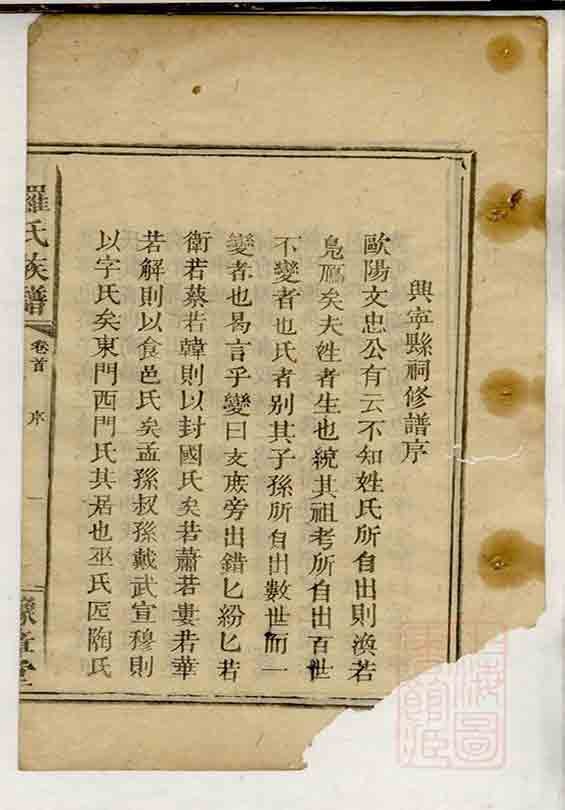 興寧縣祠修譜序
歐陽文忠公有云不知姓氏所自出則渙若
鳧鴈矣夫姓者生也統其祖考所自出百世
不變者也氏者别其子孫所自出數世而一
變者也曷言乎變曰支庶旁出錯匕紛匕若
衛若蔡若韓則以封國氏矣若蕭若婁若華
若解則以食邑氏矣孟孫叔孫戴武宣穆則
以字氏矣東門西門氏其居也巫氏匠陶氏
羅氏族譜
卷首
序
一
豫章堂